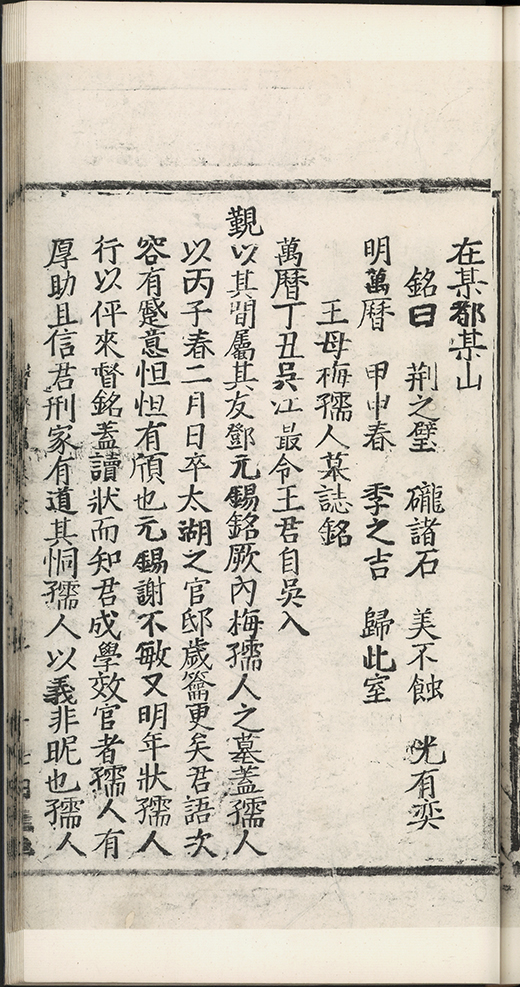 在某都某山
銘曰 荆之璧 礲諸石 美不蝕 光有奕
明萬曆 甲申春 季之吉 歸此室
王母梅孺人墓誌銘
萬曆丁丑吳江最令王君自吳入
覲以其間屬其友鄧元錫銘厥內梅孺人之墓蓋孺人
以丙子春二月日卒太湖之官邸歲籥更矣君語次
容有蹙意怛怛有頎也元錫謝不敏又明年狀孺人
行以伻來督銘蓋讀狀而知君成學效官者孺人有
厚助且信君刑家有道其恫孺人以義非昵也孺人